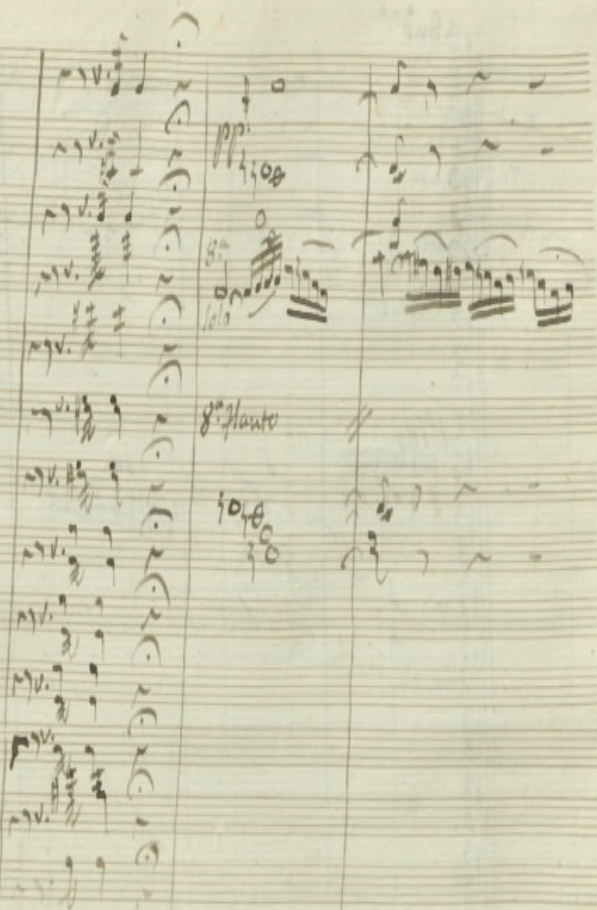 pp.
8ª
Solo
8ª Flauto